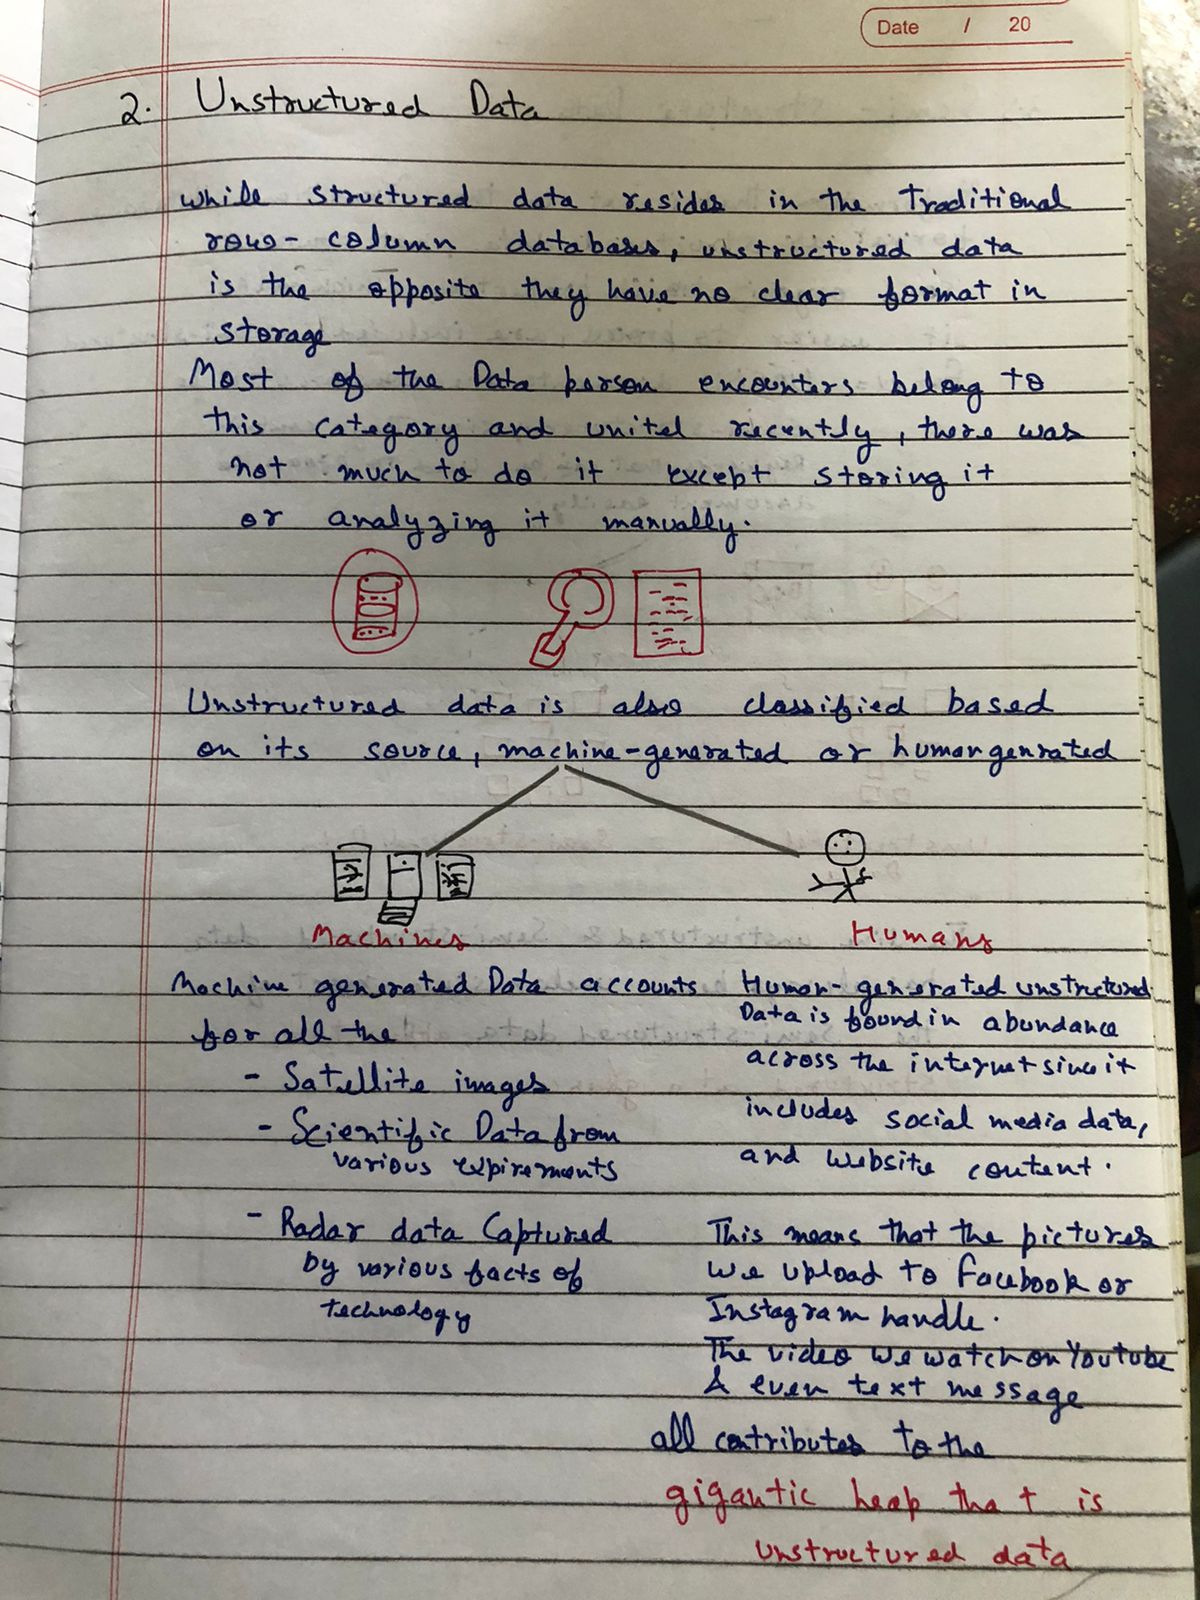 Date / 20
2. Unstructured Data
while structured data resides in the Traditional
row-column databases, unstructured data
is the opposite they have no clear format in
storage
Most of the Data person encounters belong to
this category and unitel recently, there was
not much to do it except storing it
or analyzing it manually.
Unstructured data is also classified based
on its source, machine-generated or human genrated
Machines
Humans
Machine generated Data accounts
for all the
- Satellite images
- Scientific Data from
various expirements
- Radar data Captured
by various facts of
technology
Human-generated unstructured
Data is found in abundance
across the internet since it
includes social media data,
and website content.
This means that the pictures
we upload to Facebook or
Instagram handle.
The video we watch on Youtube
& even text message
all contributes to the
gigantic heap that is
unstructured data